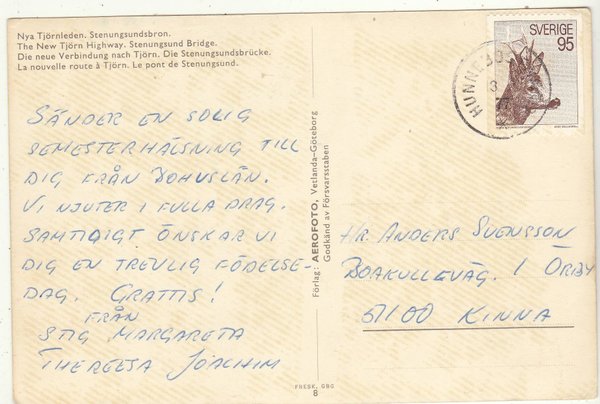 Nya Tjörnleden. Stenungsundsbron.
The New Tjörn Highway. Stenungsund Bridge.
Die neue Verbindung nach Tjörn. Die Stenungsundsbrücke.
La nouvelle route à Tjörn. Le pont de Stenungsund.
SÄNDER EN SOLIG
SEMESTERHÄLSNING TILL
DIG FRÅN BOHUSLÄN.
VI NJUTER I FULLA DRAG.
SAMTIDIGT ÖNSKAR VI
DIG EN TREVLIG FÖDELSE-
DAG. GRATTIS!
FRÅN
STIG MARGARETA
THERESA JOACHIM
Förlag: AEROFOTO, Vetlanda-Göteborg
Godkänd av Försvarsstaben
FRESK. GBG
8
SVERIGE
95
HUNNEBOS
3
Hr. ANDERS SVENSSON
BOAKULLEVÄG. 1 ÖRBY
51100 KINNA